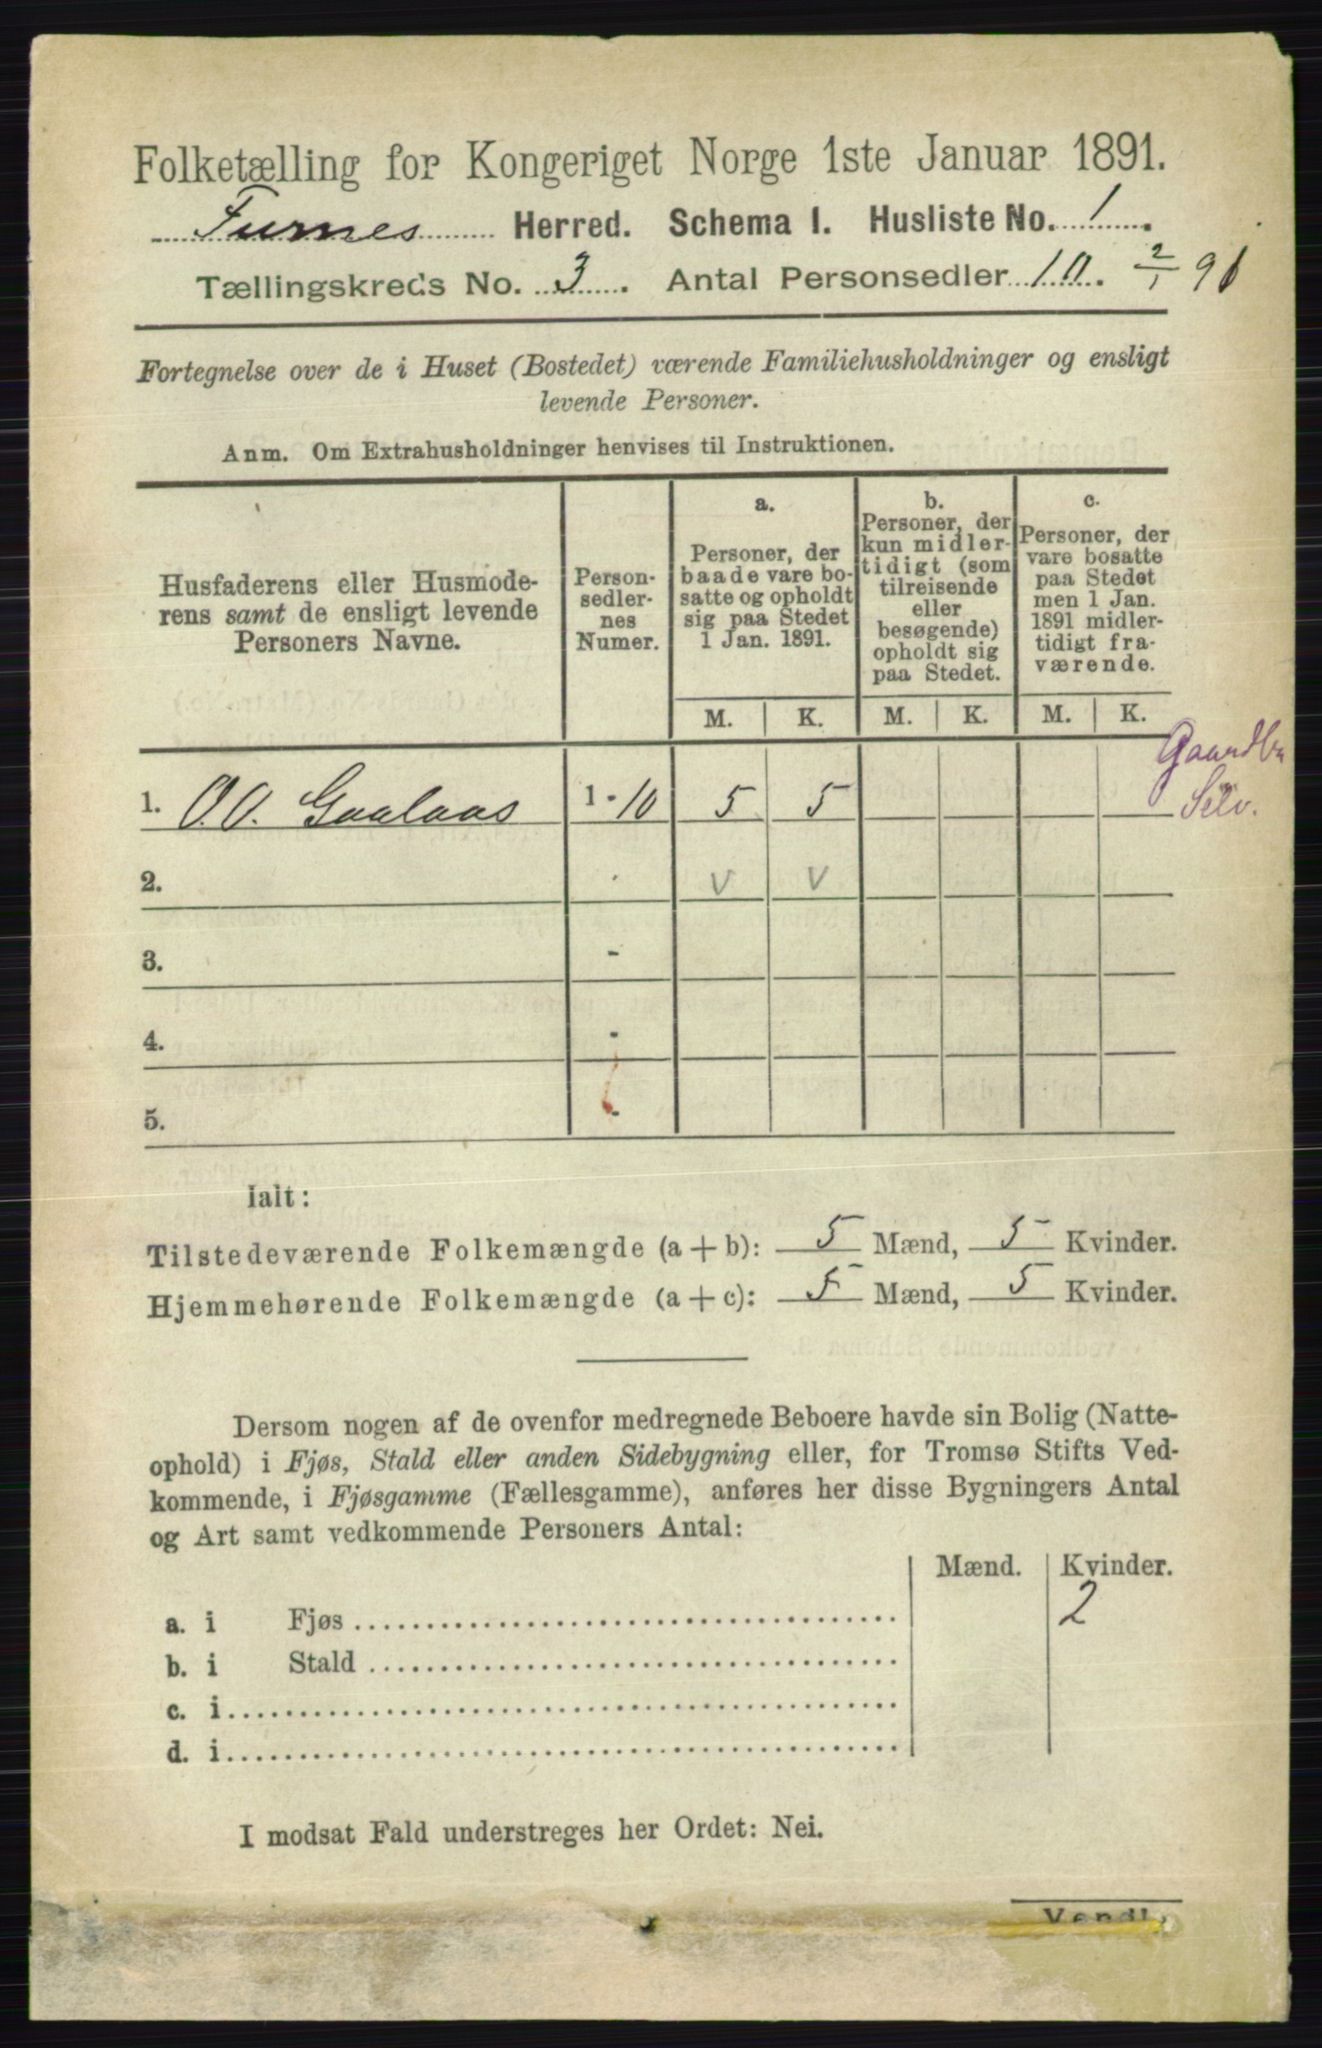 Folketælling for Kongeriget Norge 1ste Januar 1891.
Furnes Herred. Schema I. Husliste No. 1.
Tællingskreds No. 3. Antal Personsedler 10. 2/1 91
Fortegnelse over de i Huset (Bostedet) værende Familiehusholdninger og ensligt
levende Personer.
Anm. Om Extrahusholdninger henvises til Instruktionen.
Husfaderens eller Husmode-
rens samt de ensligt levende
Personers Navne.
Person-
sedler-
nes
Numer.
a.
Personer, der
baade vare bo-
satte og opholdt
sig paa Stedet
1 Jan. 1891.
b.
Personer, der
kun midler-
tidigt (som
tilreisende
eller
besøgende)
opholdt sig
paa Stedet.
c.
Personer, der
vare bosatte
paa Stedet
men 1 Jan.
1891 midler-
tidigt fra-
værende.
M. K. M. K. M. K.
Gaardbr
1. O.O. Gaalaas 1 - 10 5 5 Selv.
2. V V
3. -
4. -
5. -
Ialt:
Tilstedeværende Folkemængde (a + b): 5 Mænd, 5 Kvinder.
Hjemmehørende Folkemængde (a + c): 5 Mænd, 5 Kvinder.
Dersom nogen af de ovenfor medregnede Beboere havde sin Bolig (Natte-
ophold) i Fjøs, Stald eller anden Sidebygning eller, for Tromsø Stifts Ved-
kommende, i Fjøsgamme (Fællesgamme), anføres her disse Bygningers Antal
og Art samt vedkommende Personers Antal:
Mænd. Kvinder.
a. i Fjøs 2
b. i Stald
c. i
d. i
I modsat Fald understreges her Ordet: Nei.
Vend!